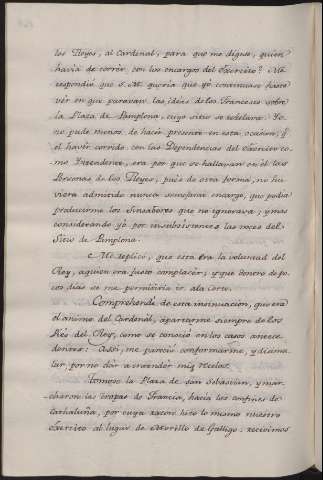 los Reyes, al Cardenal, para que me digese, quien
havia de correr con los encargos del Exercito? Me
respondio que S. M. queria que yo continuase hasta
ver en que paravan las ideas de los Franceses sobre
la Plaza de Pamplona, cuyo sitio se zelava. Yo
no pude menos de hacer presente en esta ocasion, q.
el haver corrido con las Dependencias del Exercito co-
mo Intendente, era por que se hallavan en él las
Personas de los Reyes, pues de otra forma, no hu-
viera admitido nunca semejante encargo, que podia
producirme los Sinsabores que no ignorava; y mas
considerando yo por insubsistentes las voces del
Sitio de Pamplona.
Me replicó, que esta era la voluntad del
Rey, a quien era justo complacer; y que dentro de po-
cos dias se me permitiria ir a la Corte.
Comprehendi de esta insinuacion, que era
el animo del Cardenal, apartarme siempre de los
Pies del Rey, como se conoció en los casos antece-
dentes: Assi, me pareció conformarme, y disimu-
lar, por no dar a entender mis rezelos.
Tomose la Plaza de San Sebastian, y mar-
charon las tropas de Francia, hacia los confines de
Cathaluña, por cuya razon hizo lo mismo nuestro
Exercito al lugar de Morillo de Gallego: recivimos